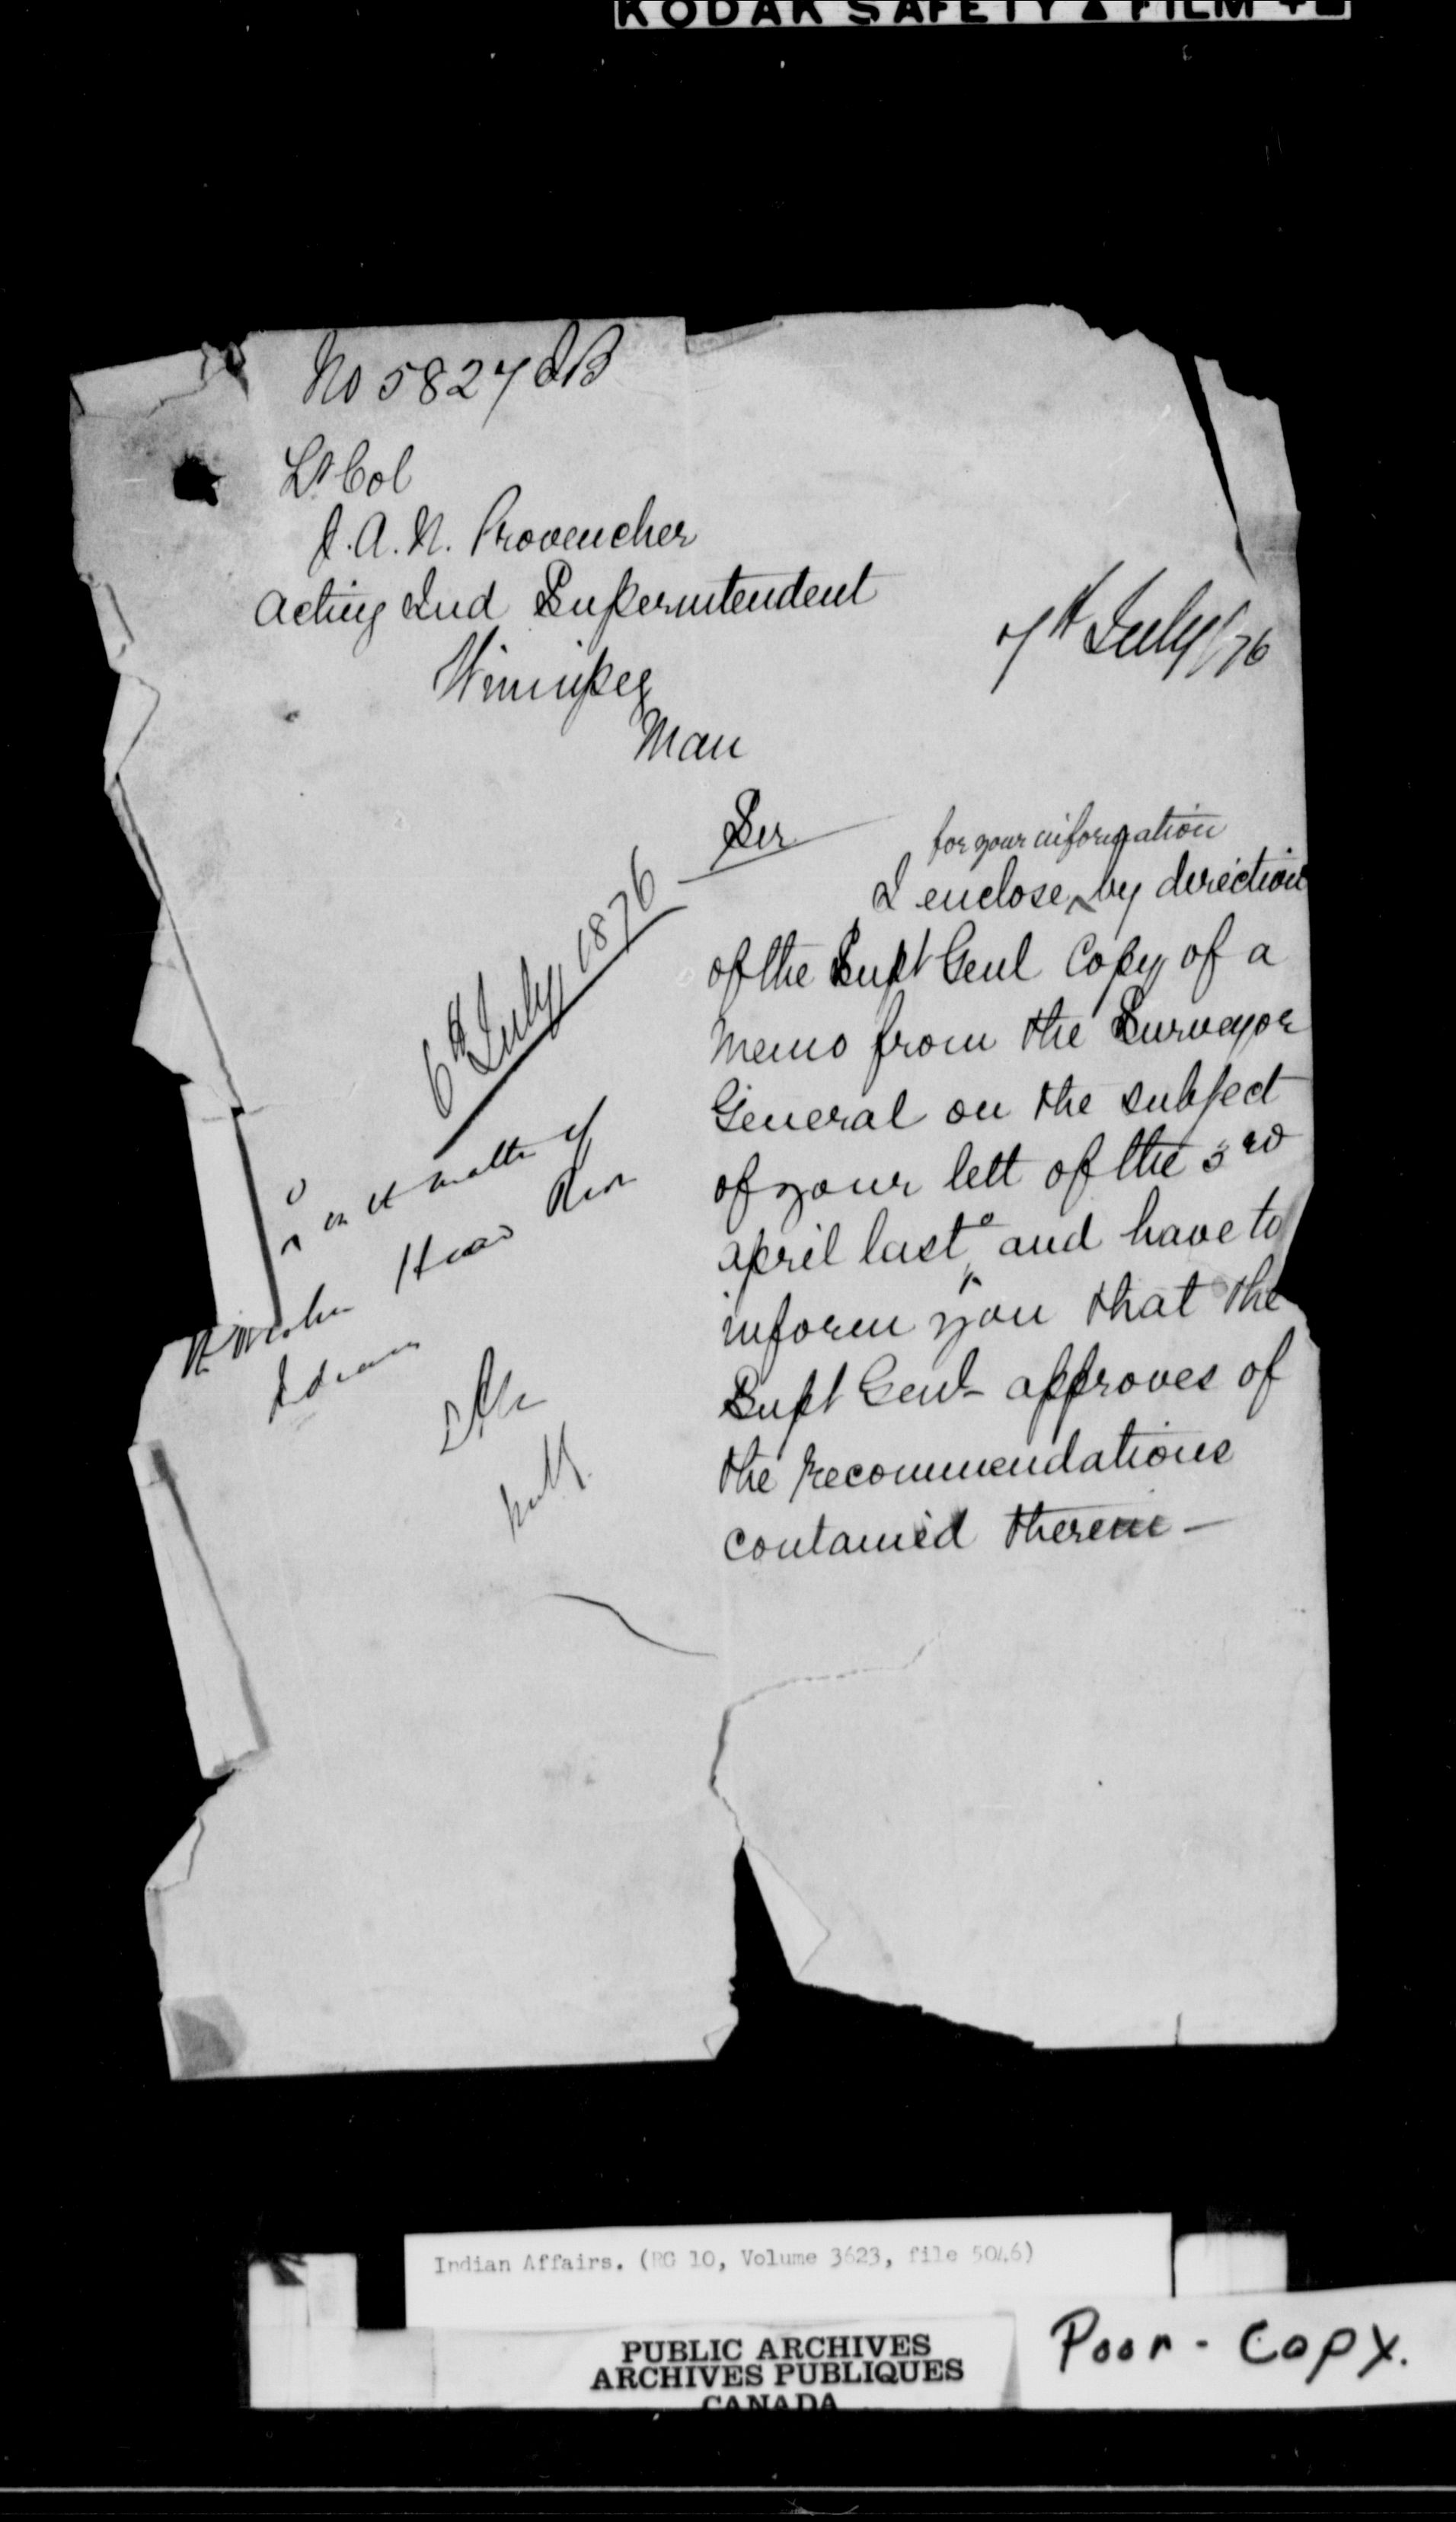 KODAK SAFETY FILM
No 5827 IB
Lt Col
J. A. N. Provencher
Acting Ind Superintendent
Winnipeg
Man
7th July/76
Sir
for your information
I enclose by direction
of the Supt Genl Copy of a
Memo from the Surveyor
General on the subject
of your lett of the 3rd
April last and have to
inform you that the
Supt Genl approves of
the recommendations
contained therein
6th July 1876
matter of
Indians
Indian Affairs. (RG 10, Volume 3623, file 5046)
PUBLIC ARCHIVES
ARCHIVES PUBLIQUES
CANADA
Poor - Copy.